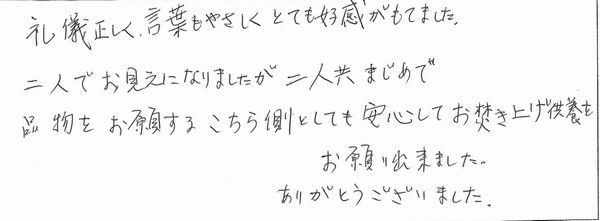 礼儀正しく、言葉もやさしくとても好感がもてました。
二人でお見えになりましたが二人共まじめで
品物をお願するこちら側としても安心してお焚き上げ供養を
お願い出来ました。
ありがとうございました。